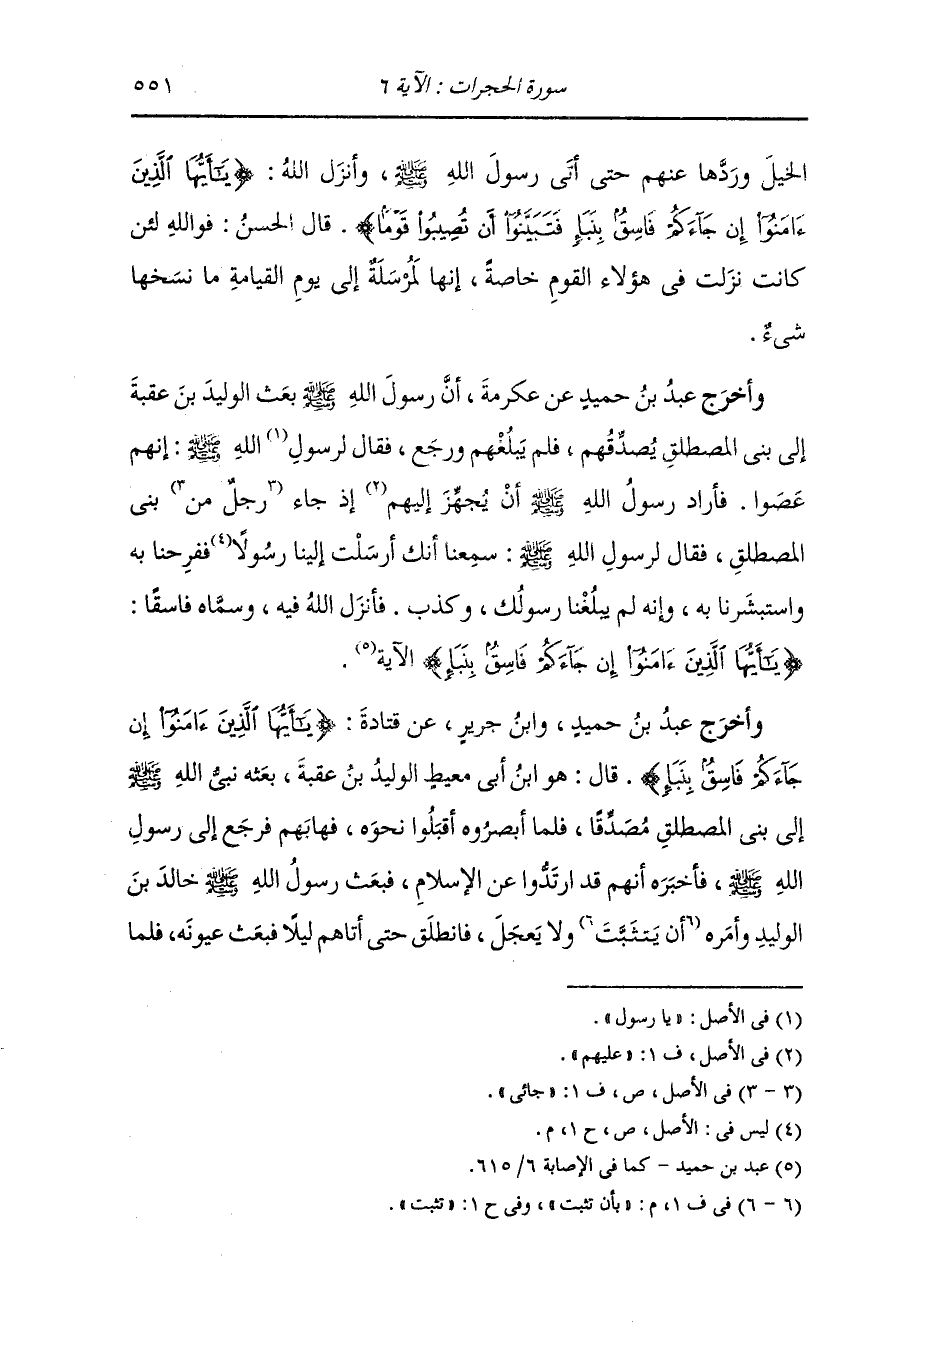 سورة الحجرات : الآية ٦ ٥٥١
الخيلَ وردَّها عنهم حتى أتَى رسولَ اللهِ ﷺ ، وأنزَل اللهُ : ﴿يَٰٓأَيُّهَا ٱلَّذِينَ
ءَامَنُوٓاْ إِن جَآءَكُمۡ فَاسِقُۢ بِنَبَإٖ فَتَبَيَّنُوٓاْ أَن تُصِيبُواْ قَوۡمَۢا﴾ . قال الحسنُ : فواللهِ لئن
كانت نزَلت فى هؤلاء القومِ خاصةً ، إنها لَمُرْسَلَةٌ إلى يومِ القيامةِ ما نسَخها
شىءٌ .
وأخرَج عبدُ بنُ حميدٍ عن عكرمةَ ، أنَّ رسولَ اللهِ ﷺ بعَث الوليدَ بنَ عقبةَ
إلى بنى المصطلقِ يُصدِّقُهم ، فلم يَبلُغْهم ورجَع ، فقال لرسولِ(١) اللهِ ﷺ : إنهم
عَصَوا . فأراد رسولُ اللهِ ﷺ أنْ يُجهِّزَ إليهم(٢) إذ جاء (٣رجلٌ من٣) بنى
المصطلقِ ، فقال لرسولِ اللهِ ﷺ : سمِعنا أنك أرسَلْت إلينا رسُولًا(٤) ففرِحنا به
واستبشَرنا به ، وإنه لم يبلُغْنا رسولُك ، وكذب . فأنزَل اللهُ فيه ، وسمَّاه فاسقًا :
﴿يَٰٓأَيُّهَا ٱلَّذِينَ ءَامَنُوٓاْ إِن جَآءَكُمۡ فَاسِقُۢ بِنَبَإٖ﴾ الآية(٥) .
وأخرَج عبدُ بنُ حميدٍ ، وابنُ جريرٍ ، عن قتادةَ : ﴿يَٰٓأَيُّهَا ٱلَّذِينَ ءَامَنُوٓاْ إِن
جَآءَكُمۡ فَاسِقُۢ بِنَبَإٖ﴾ . قال : هو ابنُ أبى معيطٍ الوليدُ بنُ عقبةَ ، بعَثه نبىُّ اللهِ ﷺ
إلى بنى المصطلقِ مُصَدِّقًا ، فلما أبصرُوه أقبَلُوا نحوَه ، فهابَهم فرجَع إلى رسولِ
اللهِ ﷺ ، فأخبَرَه أنهم قد ارتَدُّوا عن الإسلامِ ، فبعَث رسولُ اللهِ ﷺ خالدَ بنَ
الوليدِ وأمَره (٦أن يَتثَبَّتَ٦) ولا يَعجَلَ ، فانطلَق حتى أتاهم ليلًا فبعَث عيونَه، فلما
(١) فى الأصل : «يا رسول» .
(٢) فى الأصل ، ف ١: «عليهم» .
(٣ - ٣) فى الأصل ، ص ، ف ١: «جائى» .
(٤) ليس فى : الأصل ، ص ، ح ١، م .
(٥) عبد بن حميد - كما فى الإصابة ٦/ ٦١٥.
(٦ - ٦) فى ف ١، م : «بأن تثبت» ، وفى ح ١: «تثبت» .